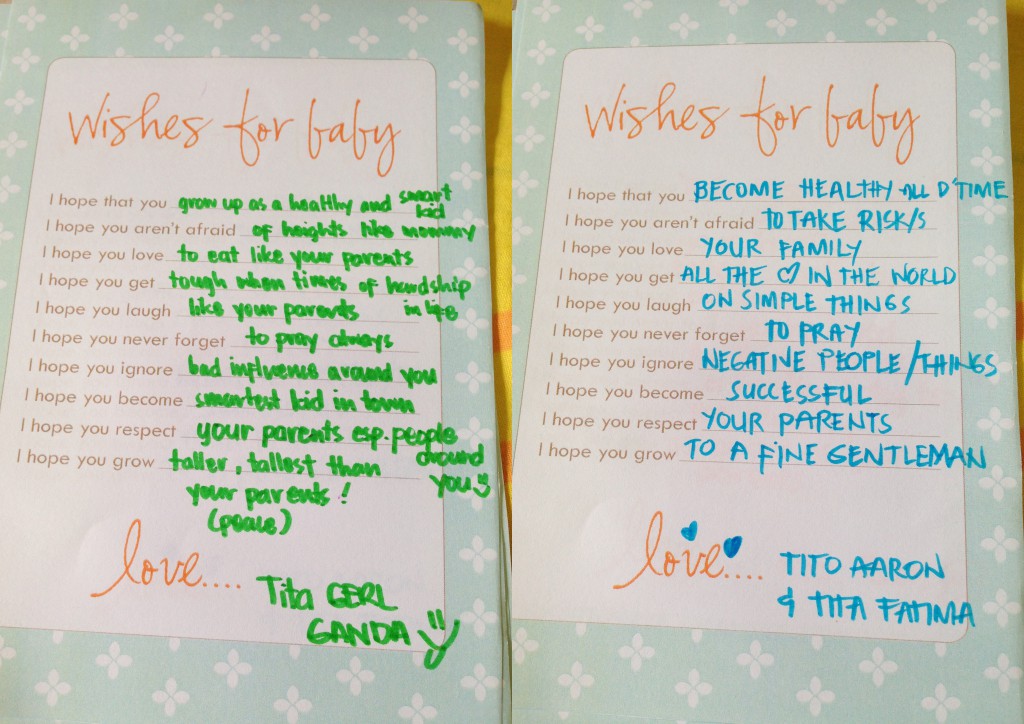 wishes for baby
I hope that you grow up as a healthy and smart kid
I hope you aren't afraid of heights like mommy
I hope you love to eat like your parents
I hope you get tough when times of hardship in life
I hope you laugh like your parents
I hope you never forget to pray always
I hope you ignore bad influence around you
I hope you become smartest kid in town
I hope you respect your parents esp. people around you
I hope you grow taller, tallest than
your parents!
(peace)
love....
Tita GERL
GANDA
wishes for baby
I hope that you BECOME HEALTHY ALL D'TIME
I hope you aren't afraid TO TAKE RISK/S
I hope you love YOUR FAMILY
I hope you get ALL THE ♡ IN THE WORLD
I hope you laugh ON SIMPLE THINGS
I hope you never forget TO PRAY
I hope you ignore NEGATIVE PEOPLE/THINGS
I hope you become SUCCESSFUL
I hope you respect YOUR PARENTS
I hope you grow TO A FINE GENTLEMAN
love....
TITO AARON
& TITA FATIMA